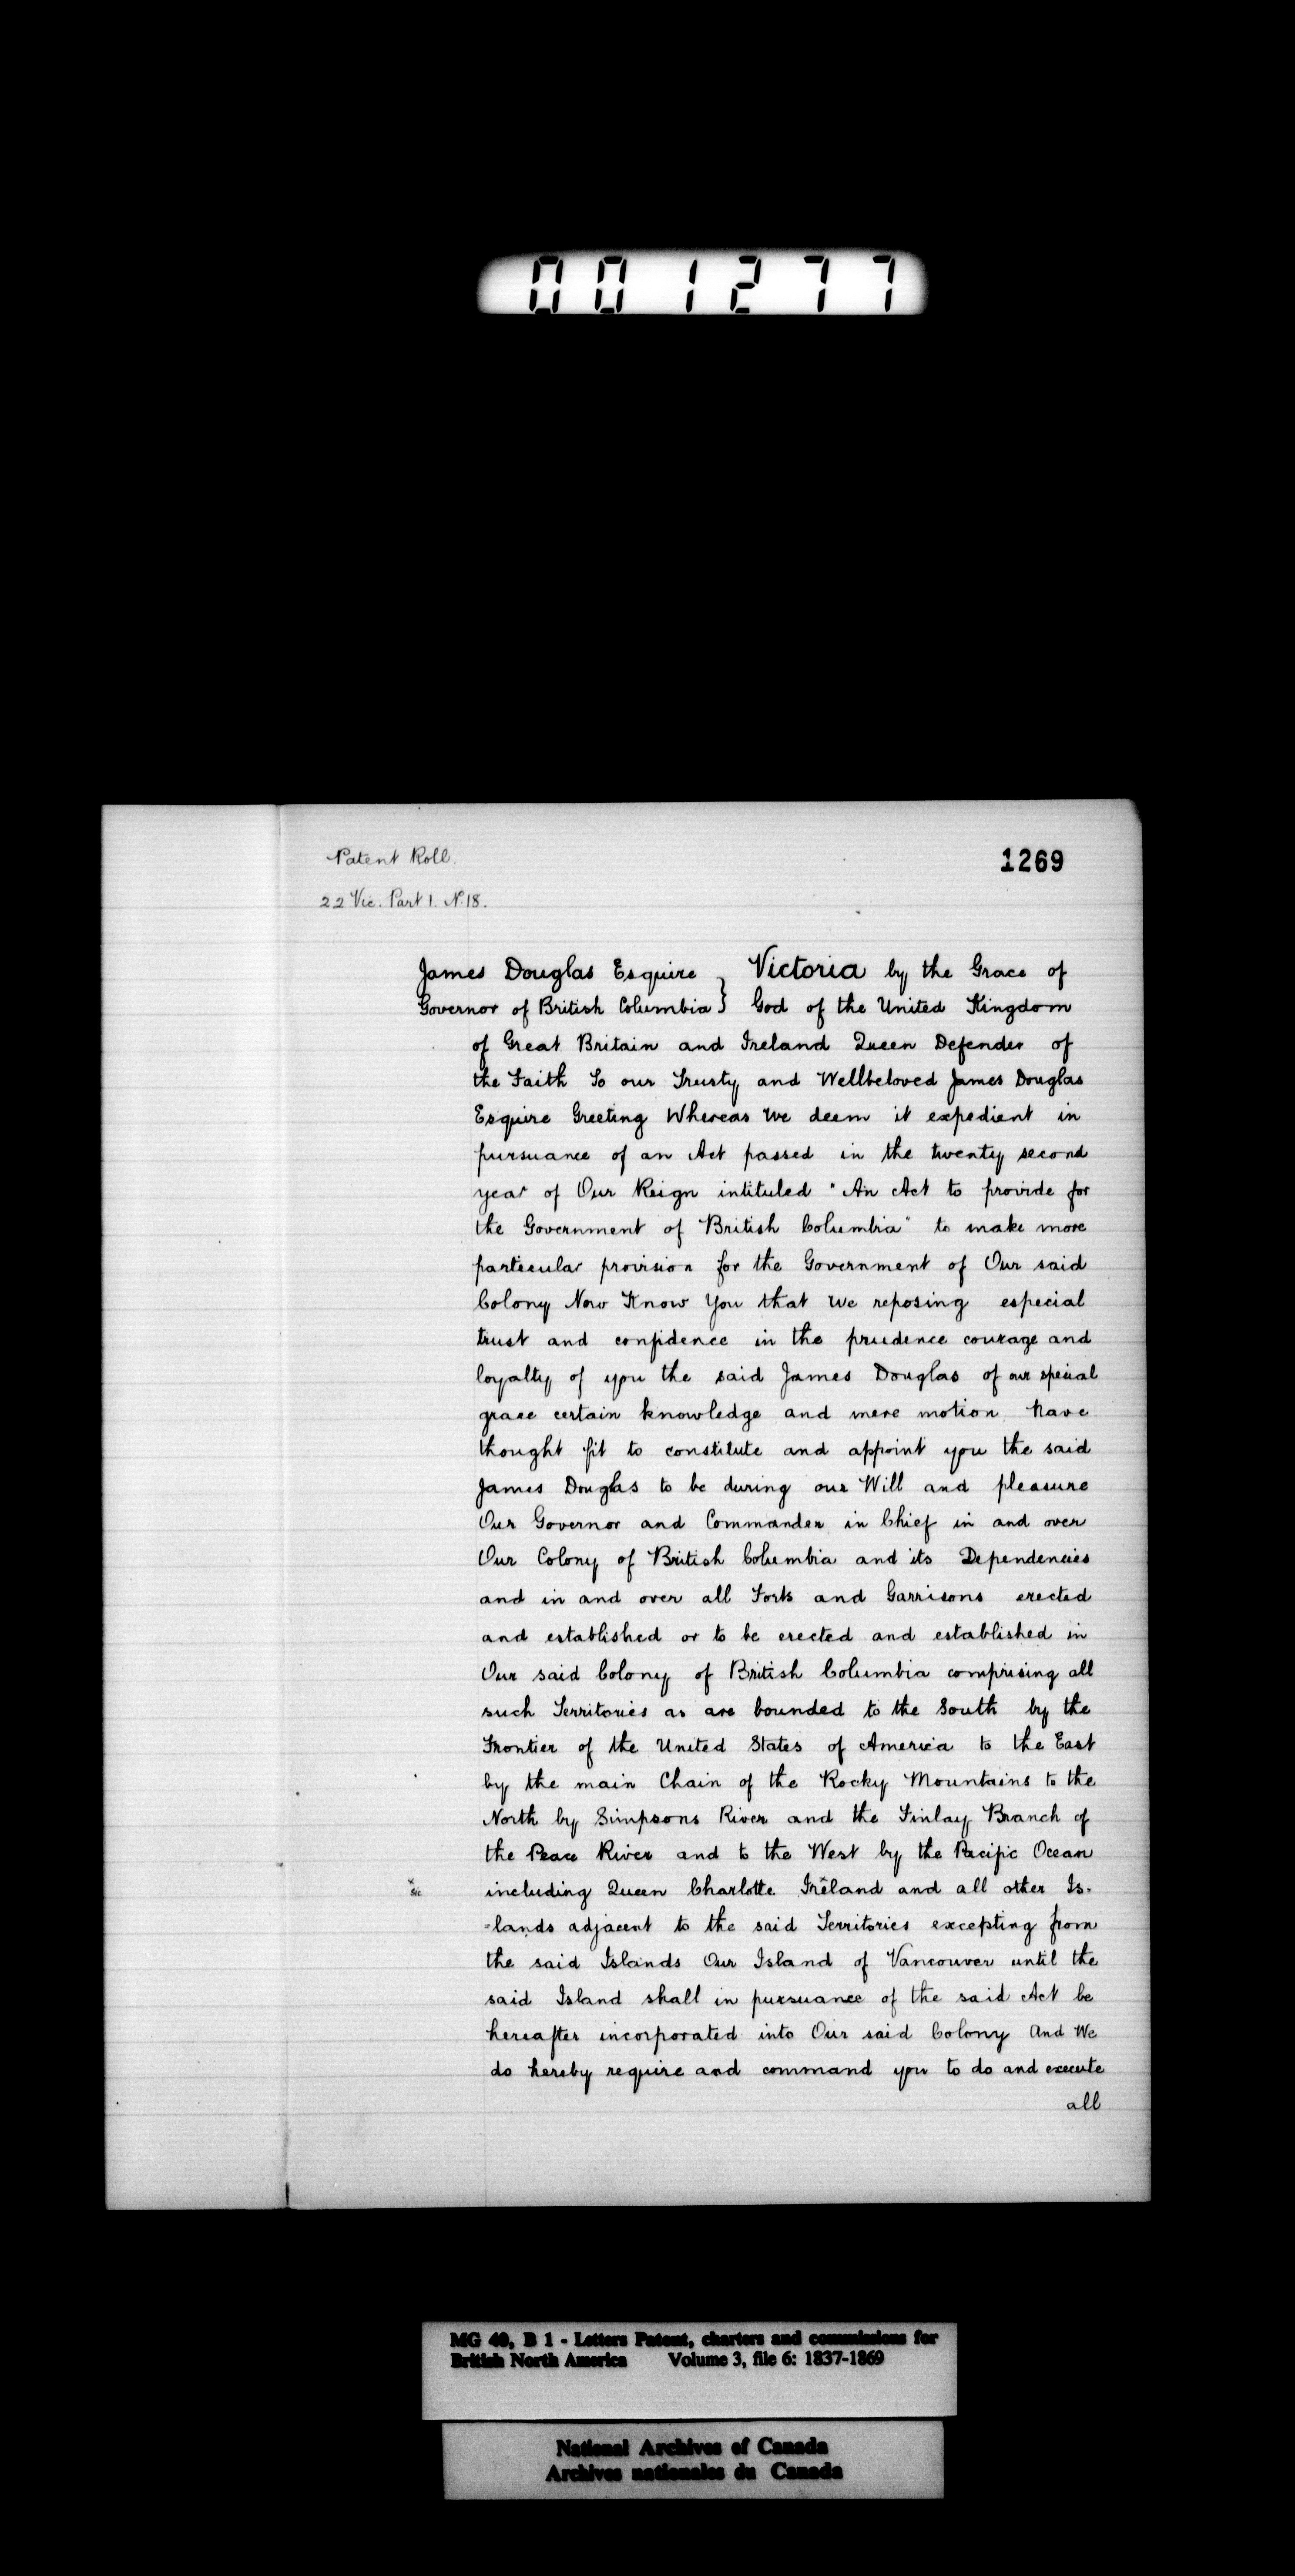 001277
Patent Roll.
1269
22 Vic. Part 1. No. 18.
James Douglas Esquire } Victoria by the Grace of
Governor of British Columbia } God of the United Kingdom
of Great Britain and Ireland Queen Defender of
the Faith To our Trusty and Wellbeloved James Douglas
Esquire Greeting Whereas We deem it expedient in
pursuance of an Act passed in the twenty second
year of Our Reign intituled "An Act to provide for
the Government of British Columbia" to make more
particular provision for the Government of Our said
Colony Now Know You that We reposing especial
trust and confidence in the prudence courage and
loyalty of you the said James Douglas of our special
grace certain knowledge and mere motion have
thought fit to constitute and appoint you the said
James Douglas to be during our Will and pleasure
Our Governor and Commander in Chief in and over
Our Colony of British Columbia and its Dependencies
and in and over all Forts and Garrisons erected
and established or to be erected and established in
Our said Colony of British Columbia comprising all
such Territories as are bounded to the South by the
Frontier of the United States of America to the East
by the main Chain of the Rocky Mountains to the
North by Simpsons River and the Finlay Branch of
the Peace River and to the West by the Pacific Ocean
x sic including Queen Charlotte Irexland and all other Is-
-lands adjacent to the said Territories excepting from
the said Islands Our Island of Vancouver until the
said Island shall in pursuance of the said Act be
hereafter incorporated into Our said Colony And We
do hereby require and command you to do and execute
all
MG 40, B 1 - Letters Patent, charters and commissions for
British North America Volume 3, file 6: 1837-1869
National Archives of Canada
Archives nationales du Canada